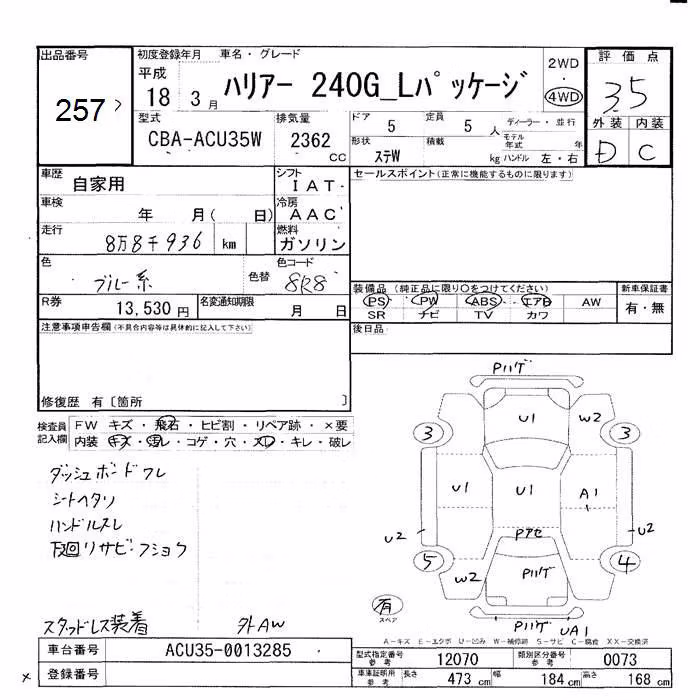 出品番号 初度登録年月 車名・グレード 2WD ・ 4WD 評価点
257 平成 18 3月 ハリアー 240G_Lパッケージ 3.5
型式 CBA-ACU35W 排気量 2362 CC ドア 5 定員 5 人 ディーラー・並行 外装 内装
形状 ステW 積載 kg モデル年式 年 ハンドル 左・右 D C
車歴 自家用 シフト IAT セールスポイント(正常に機能するものに限ります)
車検 年 月( 日) 冷房 AAC
走行 8万8千936 km 燃料 ガソリン
色 ブルー系 色替 色コード 8R8
装備品 (純正品に限り〇をつけてください) 新車保証書
PS PW ABS エアB AW 有・無
R券 13,530円 名変通知期限 月 日 SR ナビ TV カワ
注意事項申告欄(不具合内容等は具体的に記入して下さい) 後日品
修復歴 有〔箇所 〕
検査員記入欄 FW キズ・飛石・ヒビ割・リペア跡・×要
内装 キズ・汚レ・コゲ・穴・スレ・キレ・破レ
ダッシュボードワレ
シートヘタリ
ハンドルスレ
下廻リサビ-フショク
スタッドレス装着 外AW
Pハゲ
U1 W2
3 3
U1 U1 A1
U2 Pアセ U2
5 4
W2 Pハゲ
有 スペア
Pハゲ UA1
A-キズ E-エクボ U-凹ミ W-補修跡 S-サビ C-腐食 XX-交換済
車台番号 ACU35-0013285 型式指定番号 参考 12070 類別区分番号 参考 0073
× 登録番号 車車証明用 参考 長さ 473 cm 幅 184 cm 高さ 168 cm